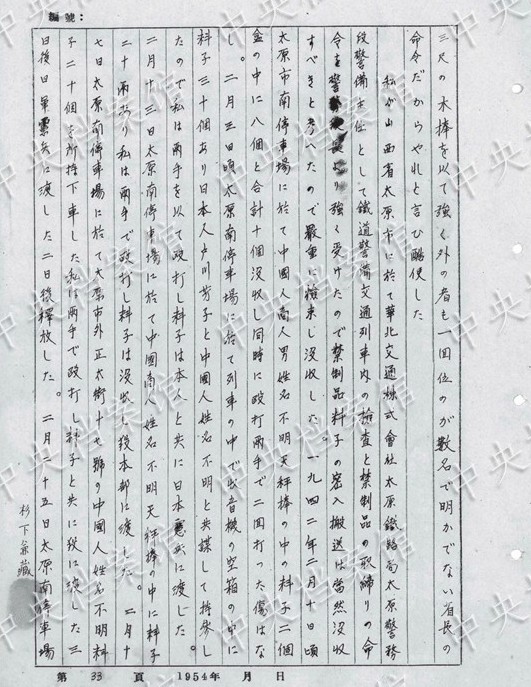 編號：
三尺の木棒を以て強く外の者も一回位のが数名で明かでない省長の
命令だからやれと言ひ酷使した
私が山西省太原市に於て華北交通株式會社太原鐵路局太原警務
段警備主任として鐵道警備交通列車内の檢査と禁制品の取締りの命
令を より強く受けたので禁制品料子の密入搬送は當然没収
すべきと考へたので嚴重に檢束し没収した。一九四二年二月十日頃
太原市南停車場に於て中國人商人男姓名不明天秤棒の中の料子二個
金の中に八個と合計十個没収し同時に殴打両手で二回打った傷はな
し。二月三日頃太原南停車場に於て列車の中で蓄音機の空箱の中に
料子三十個あり日本人戸川芳子と中國人姓名不明と共謀して持参し
たので私は両手を以て殴打し料子は本人と共に日本憲兵に渡した。
二月十三日太原南停車場に於て中國商人姓名不明天秤棒の中に料子
二十 あり私は両手で殴打し料子は没収し段本部に渡した。二月十
七日太原南停車場に於て太原市外正太街十七號の中國人姓名不明料
子二十個を所持下車した私は両手で殴打し料子と共に段に渡した三
日後日軍憲兵に渡した二日後釋放した。二月二十五日太原南停車場
杉下兼蔵
第 33 頁 1954年 月 日
中央档案馆